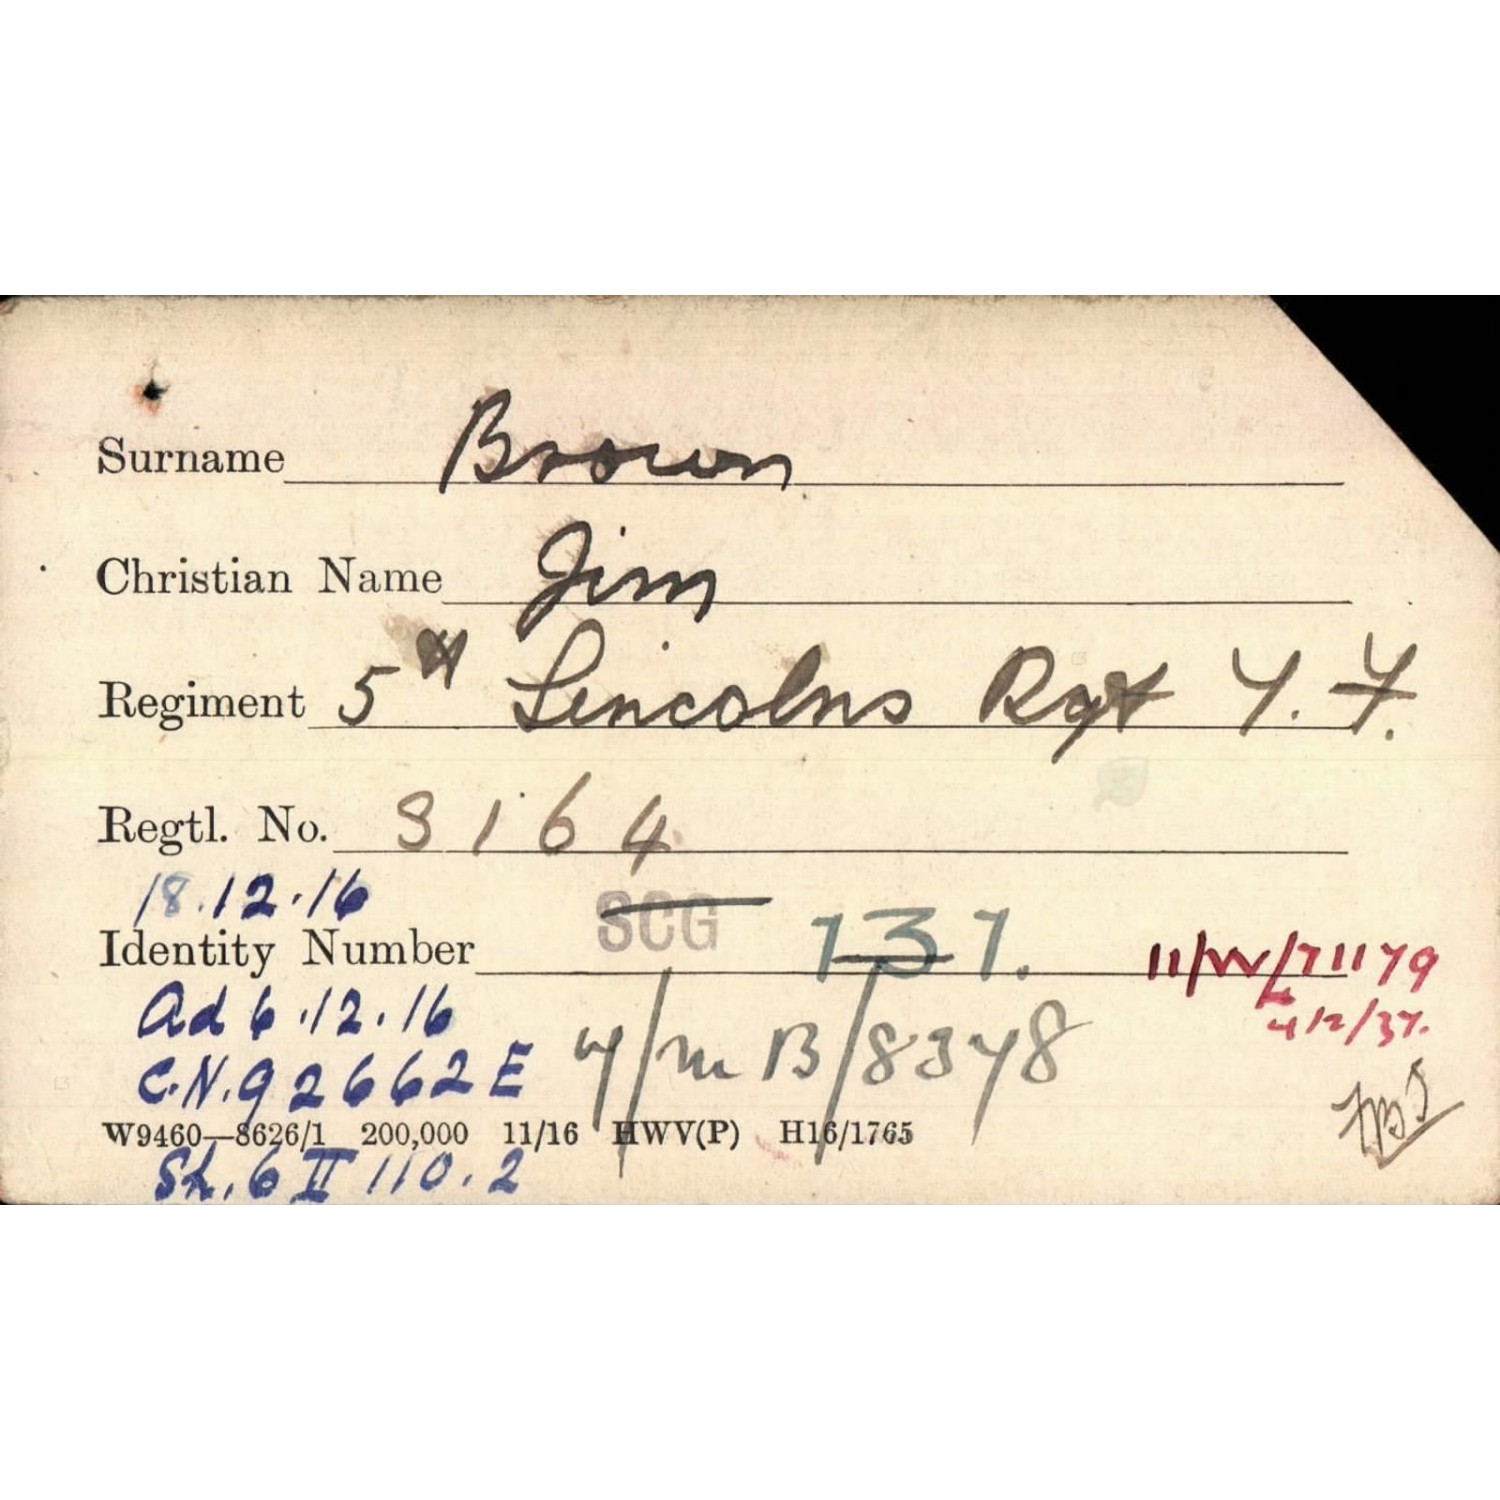 Surname Brown
Christian Name Jim
Regiment 5th Lincolns Rgt T.F.
Regtl. No. 3164
18.12.16
Identity Number SCG 737. 11/W/71179
4/2/37.
Ad 6.12.16
C.N. 92662E 4/MB/8348
W9460—8626/1 200,000 11/16 HWV(P) H16/1765
Sh. 6 II 110.2